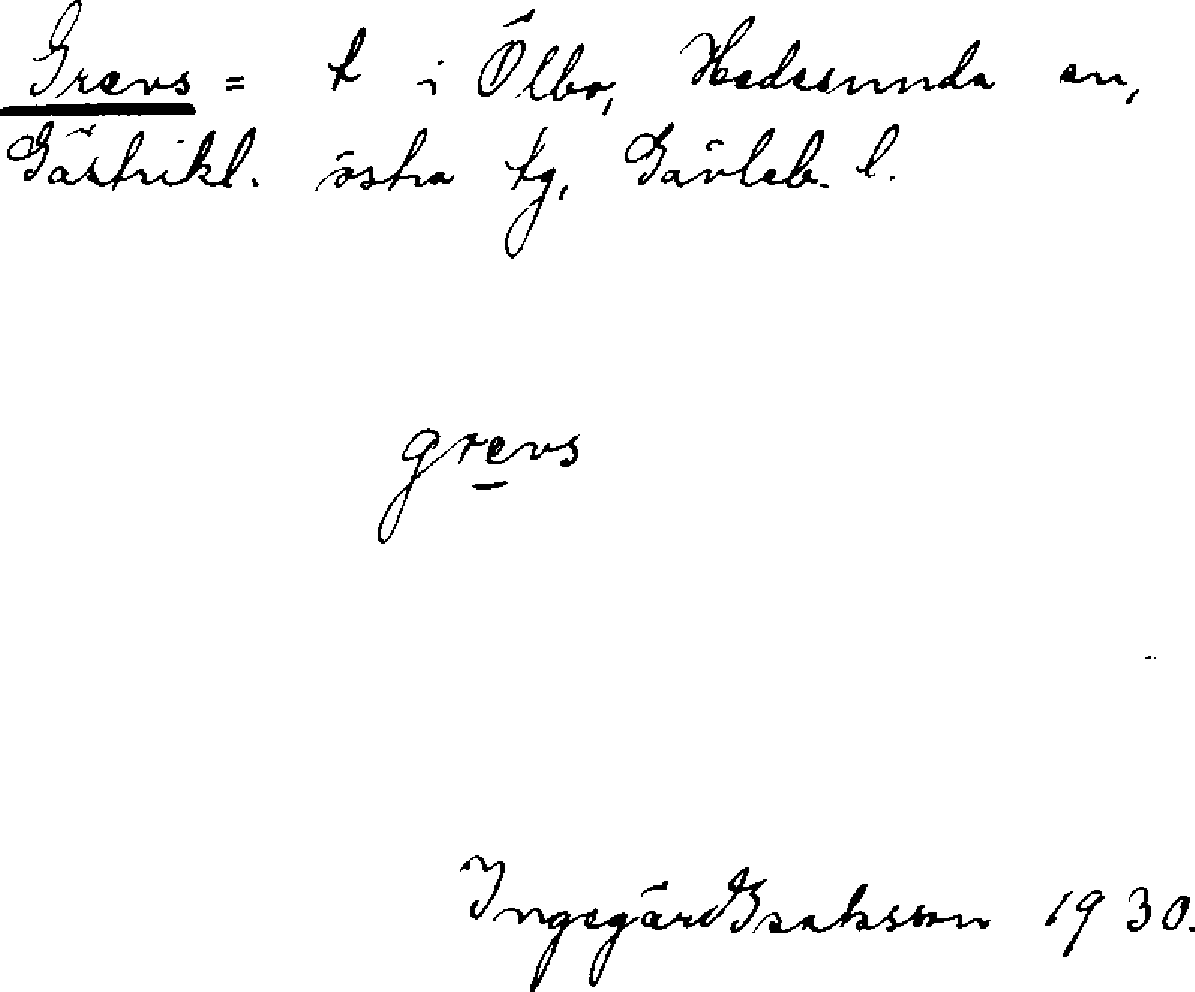 Grevs = t i Ölbo, Hedesunda sn,
Gästrikl. östra tg, Gävleb. l.
grevs
Ingegärd Isaksson 1930.